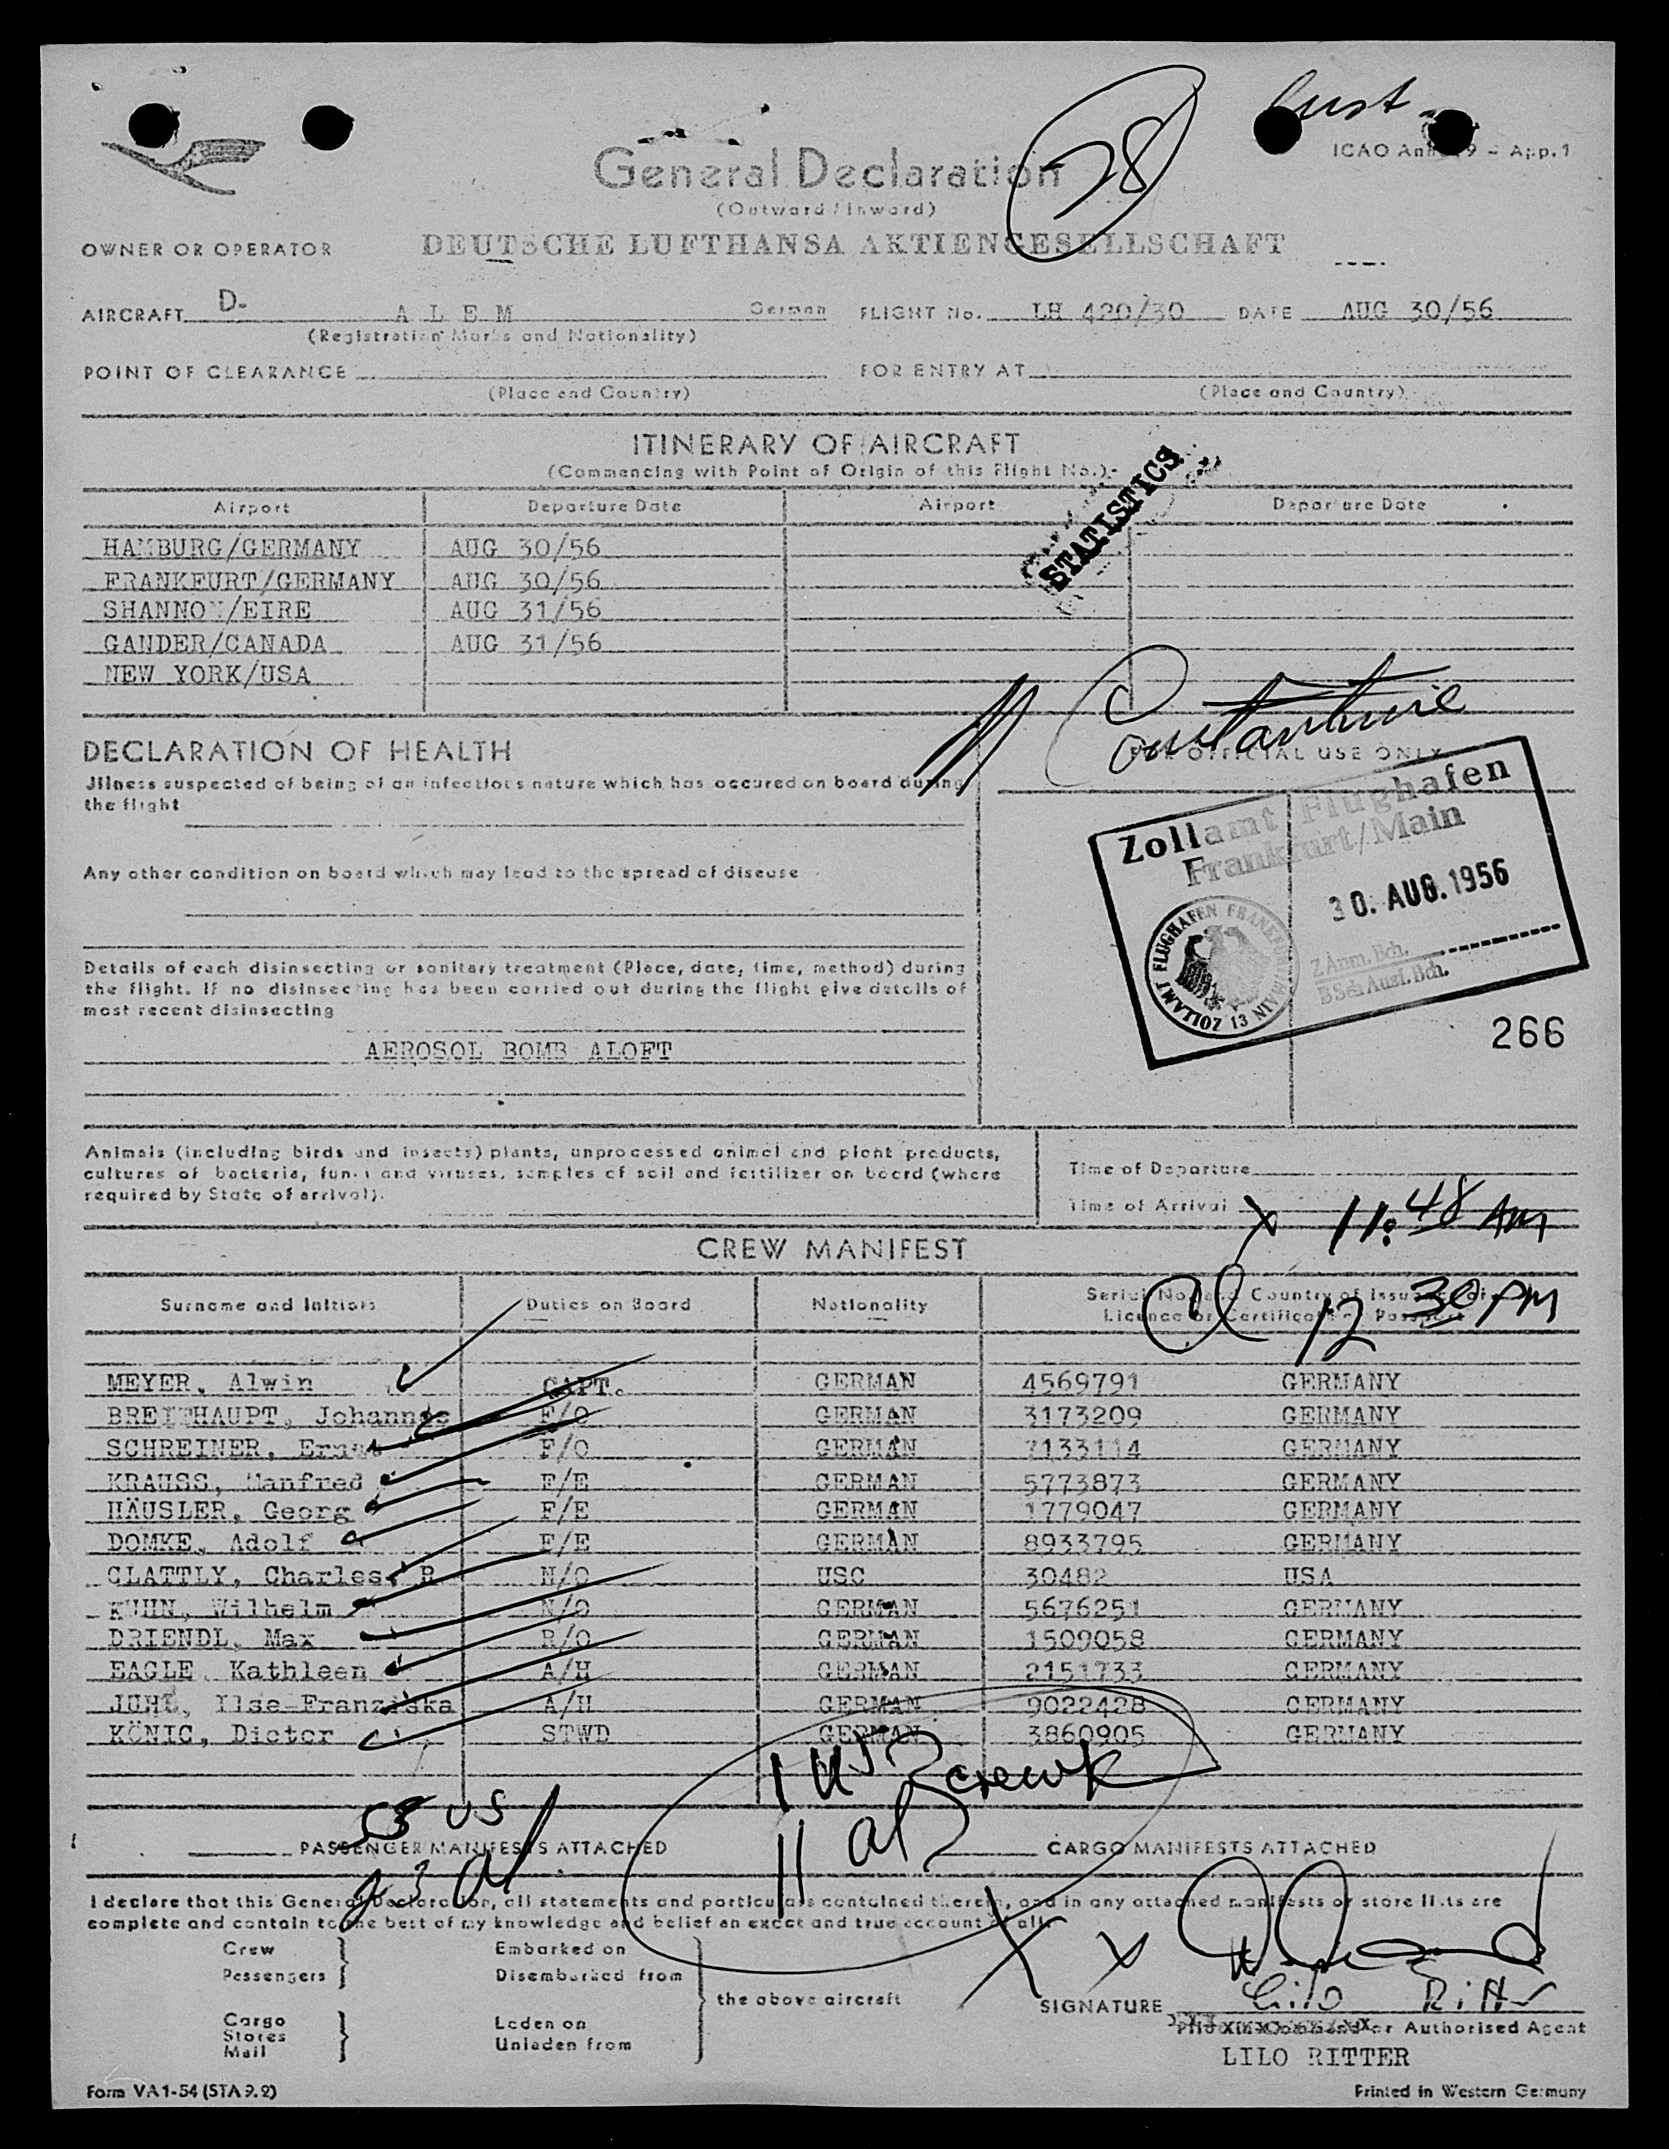 28
ICAO Annex 9 – App. 1
General Declaration
(Outward / Inward)
OWNER OR OPERATOR DEUTSCHE LUFTHANSA AKTIENGESELLSCHAFT
AIRCRAFT D- A L E M German FLIGHT No. LH 420/30 DATE AUG 30/56
(Registration Marks and Nationality)
POINT OF CLEARANCE FOR ENTRY AT
(Place and Country) (Place and Country)
ITINERARY OF AIRCRAFT
(Commencing with Point of Origin of this Flight No.)
STATISTICS
Airport Departure Date Airport Departure Date
HAMBURG/GERMANY AUG 30/56
FRANKFURT/GERMANY AUG 30/56
SHANNON/EIRE AUG 31/56
GANDER/CANADA AUG 31/56
NEW YORK/USA
Constantine
DECLARATION OF HEALTH FOR OFFICIAL USE ONLY
Jllness suspected of being of an infectious nature which has occured on board during
the flight
Zollamt Flughafen
Frankfurt/Main
30. AUG. 1956
ZOLLAMT FLUGHAFEN FRANKFURT/MAIN 13
Z Anm. Bch.
B Sch Ausf. Bch.
266
Any other condition on board which may lead to the spread of disease
Details of each disinsecting or sanitary treatment (Place, date, time, method) during
the flight. If no disinsecting has been carried out during the flight give details of
most recent disinsecting
AEROSOL BOMB ALOFT
Animals (including birds and insects) plants, unprocessed animal and plant products,
cultures of bacteria, fungi and viruses, samples of soil and fertilizer on board (where
required by State of arrival).
Time of Departure
Time of Arrival x 11:48 AM
12 30 PM
CREW MANIFEST
Surname and Initials Duties on Board Nationality Serial No. and Country of Issuance of Licence or Certificate or Passport
MEYER, Alwin CAPT. GERMAN 4569791 GERMANY
BREITHAUPT, Johannes F/O GERMAN 3173209 GERMANY
SCHREINER, Ernst F/O GERMAN 7133114 GERMANY
KRAUSS, Manfred F/E GERMAN 5773873 GERMANY
HÄUSLER, Georg F/E GERMAN 1779047 GERMANY
DOMKE, Adolf F/E GERMAN 8933795 GERMANY
CLATTLY, Charles, R N/O USC 30482 USA
KUHN, Wilhelm N/O GERMAN 5676251 GERMANY
DRIENDL, Max R/O GERMAN 1509058 GERMANY
EAGLE, Kathleen A/H GERMAN 2151733 GERMANY
JUHL, Ilse-Franziska A/H GERMAN 9022428 GERMANY
KÖNIG, Dieter STWD GERMAN 3860905 GERMANY
1 US crew
11 al
US
al
PASSENGER MANIFESTS ATTACHED CARGO MANIFESTS ATTACHED
I declare that this General Declaration, all statements and particulars contained therein, and in any attached manifests or store lists are
complete and contain to the best of my knowledge and belief an exact and true account of all
Crew Embarked on
Passengers Disembarked from
the above aircraft
Cargo Laden on
Stores
Mail Unladen from
x
SIGNATURE Lilo Ritter
Pilot in Command or Authorised Agent
LILO RITTER
Form VA 1-54 (STA 9.2) Printed in Western Germany